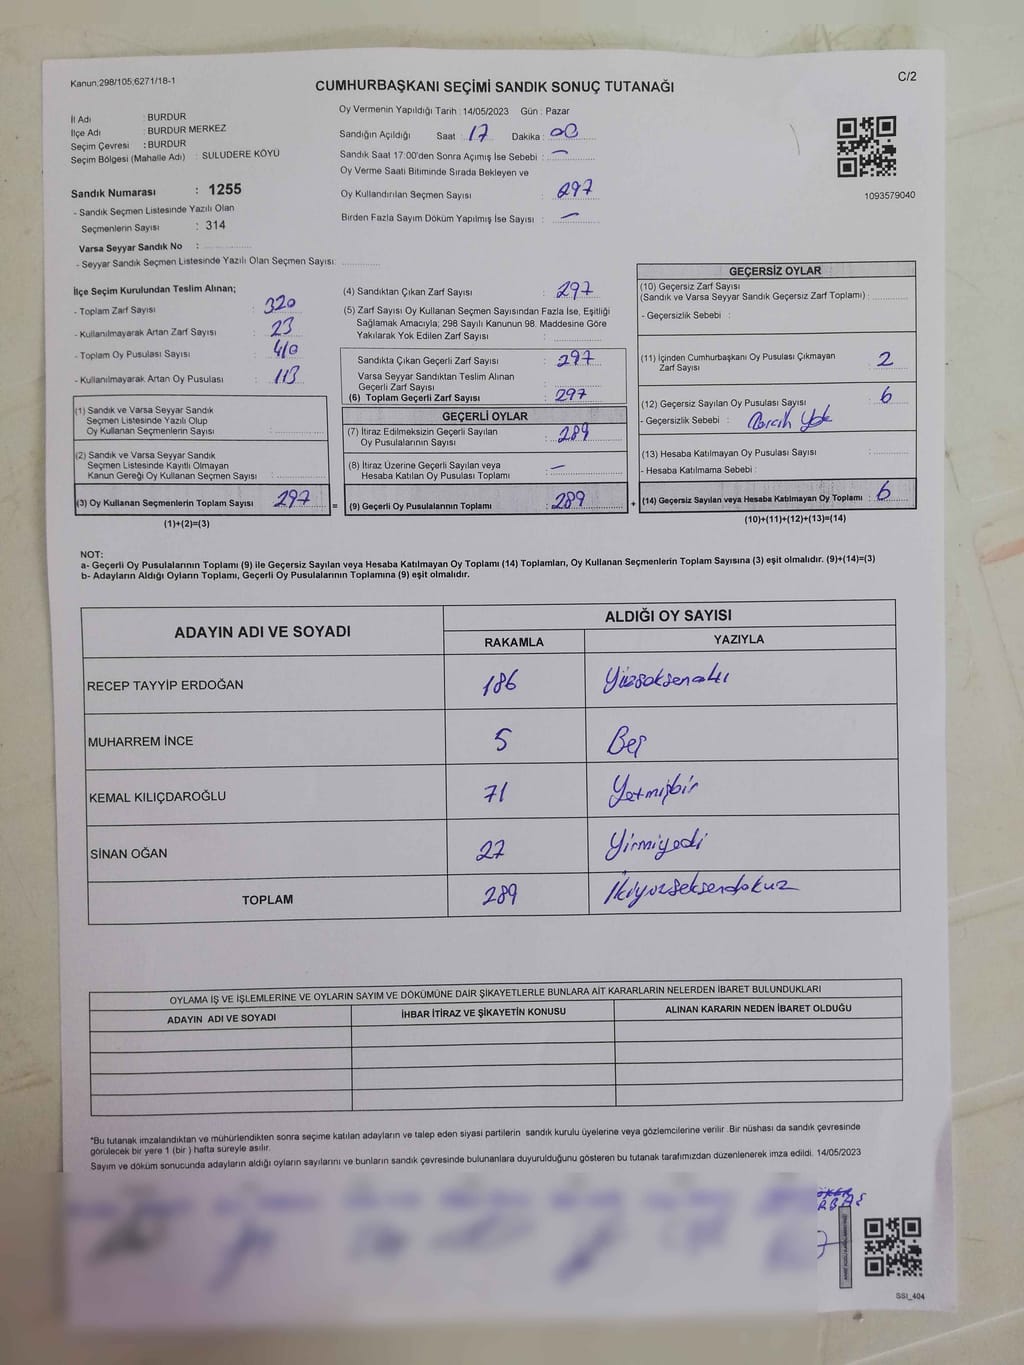 Kanun:298/105;6271/18-1
C/2
CUMHURBAŞKANI SEÇİMİ SANDIK SONUÇ TUTANAĞI
İl Adı : BURDUR
İlçe Adı : BURDUR MERKEZ
Seçim Çevresi : BURDUR
Seçim Bölgesi (Mahalle Adı) : SULUDERE KÖYÜ
Sandık Numarası : 1255
- Sandık Seçmen Listesinde Yazılı Olan
Seçmenlerin Sayısı : 314
Varsa Seyyar Sandık No :
- Seyyar Sandık Seçmen Listesinde Yazılı Olan Seçmen Sayısı:
Oy Vermenin Yapıldığı Tarih : 14/05/2023 Gün : Pazar
Sandığın Açıldığı Saat : 17 Dakika : 00
Sandık Saat 17:00'den Sonra Açımış İse Sebebi : —
Oy Verme Saati Bitiminde Sırada Bekleyen ve
Oy Kullandırılan Seçmen Sayısı : 297
Birden Fazla Sayım Döküm Yapılmış İse Sayısı : —
1093579040
İlçe Seçim Kurulundan Teslim Alınan;
- Toplam Zarf Sayısı : 320
- Kullanılmayarak Artan Zarf Sayısı : 23
- Toplam Oy Pusulası Sayısı : 410
- Kullanılmayarak Artan Oy Pusulası : 113
(1) Sandık ve Varsa Seyyar Sandık
Seçmen Listesinde Yazılı Olup
Oy Kullanan Seçmenlerin Sayısı :
(2) Sandık ve Varsa Seyyar Sandık
Seçmen Listesinde Kayıtlı Olmayan
Kanun Gereği Oy Kullanan Seçmen Sayısı :
(3) Oy Kullanan Seçmenlerin Toplam Sayısı : 297 =
(1)+(2)=(3)
(4) Sandıktan Çıkan Zarf Sayısı : 297
(5) Zarf Sayısı Oy Kullanan Seçmen Sayısından Fazla İse, Eşitliği
Sağlamak Amacıyla; 298 Sayılı Kanunun 98. Maddesine Göre
Yakılarak Yok Edilen Zarf Sayısı :
Sandıkta Çıkan Geçerli Zarf Sayısı : 297
Varsa Seyyar Sandıktan Teslim Alınan
Geçerli Zarf Sayısı :
(6) Toplam Geçerli Zarf Sayısı : 297
GEÇERLİ OYLAR
(7) İtiraz Edilmeksizin Geçerli Sayılan
Oy Pusulalarının Sayısı : 289
(8) İtiraz Üzerine Geçerli Sayılan veya
Hesaba Katılan Oy Pusulası Toplamı : —
(9) Geçerli Oy Pusulalarının Toplamı : 289 +
GEÇERSİZ OYLAR
(10) Geçersiz Zarf Sayısı
(Sandık ve Varsa Seyyar Sandık Geçersiz Zarf Toplamı) :
- Geçersizlik Sebebi :
(11) İçinden Cumhurbaşkanı Oy Pusulası Çıkmayan
Zarf Sayısı : 2
(12) Geçersiz Sayılan Oy Pusulası Sayısı : 6
- Geçersizlik Sebebi : Yok
(13) Hesaba Katılmayan Oy Pusulası Sayısı :
- Hesaba Katılmama Sebebi :
(14) Geçersiz Sayılan veya Hesaba Katılmayan Oy Toplamı : 6
(10)+(11)+(12)+(13)=(14)
NOT:
a- Geçerli Oy Pusulalarının Toplamı (9) ile Geçersiz Sayılan veya Hesaba Katılmayan Oy Toplamı (14) Toplamları, Oy Kullanan Seçmenlerin Toplam Sayısına (3) eşit olmalıdır. (9)+(14)=(3)
b- Adayların Aldığı Oyların Toplamı, Geçerli Oy Pusulalarının Toplamına (9) eşit olmalıdır.
ADAYIN ADI VE SOYADI
ALDIĞI OY SAYISI
RAKAMLA YAZIYLA
RECEP TAYYİP ERDOĞAN 186 Yüzseksenaltı
MUHARREM İNCE 5 Beş
KEMAL KILIÇDAROĞLU 71 Yetmişbir
SİNAN OĞAN 27 Yirmiyedi
TOPLAM 289 İkiyüzseksendokuz
OYLAMA İŞ VE İŞLEMLERİNE VE OYLARIN SAYIM VE DÖKÜMÜNE DAİR ŞİKAYETLERLE BUNLARA AİT KARARLARIN NELERDEN İBARET BULUNDUKLARI
ADAYIN ADI VE SOYADI İHBAR İTİRAZ VE ŞİKAYETİN KONUSU ALINAN KARARIN NEDEN İBARET OLDUĞU
*Bu tutanak imzalandıktan ve mühürlendikten sonra seçime katılan adayların ve talep eden siyasi partilerin sandık kurulu üyelerine veya gözlemcilerine verilir .Bir nüshası da sandık çevresinde
görülecek bir yere 1 (bir ) hafta süreyle asılır.
Sayım ve döküm sonucunda adayların aldığı oyların sayılarını ve bunların sandık çevresinde bulunanlara duyurulduğunu gösteren bu tutanak tarafımızdan düzenlenerek imza edildi. 14/05/2023
SSI_404